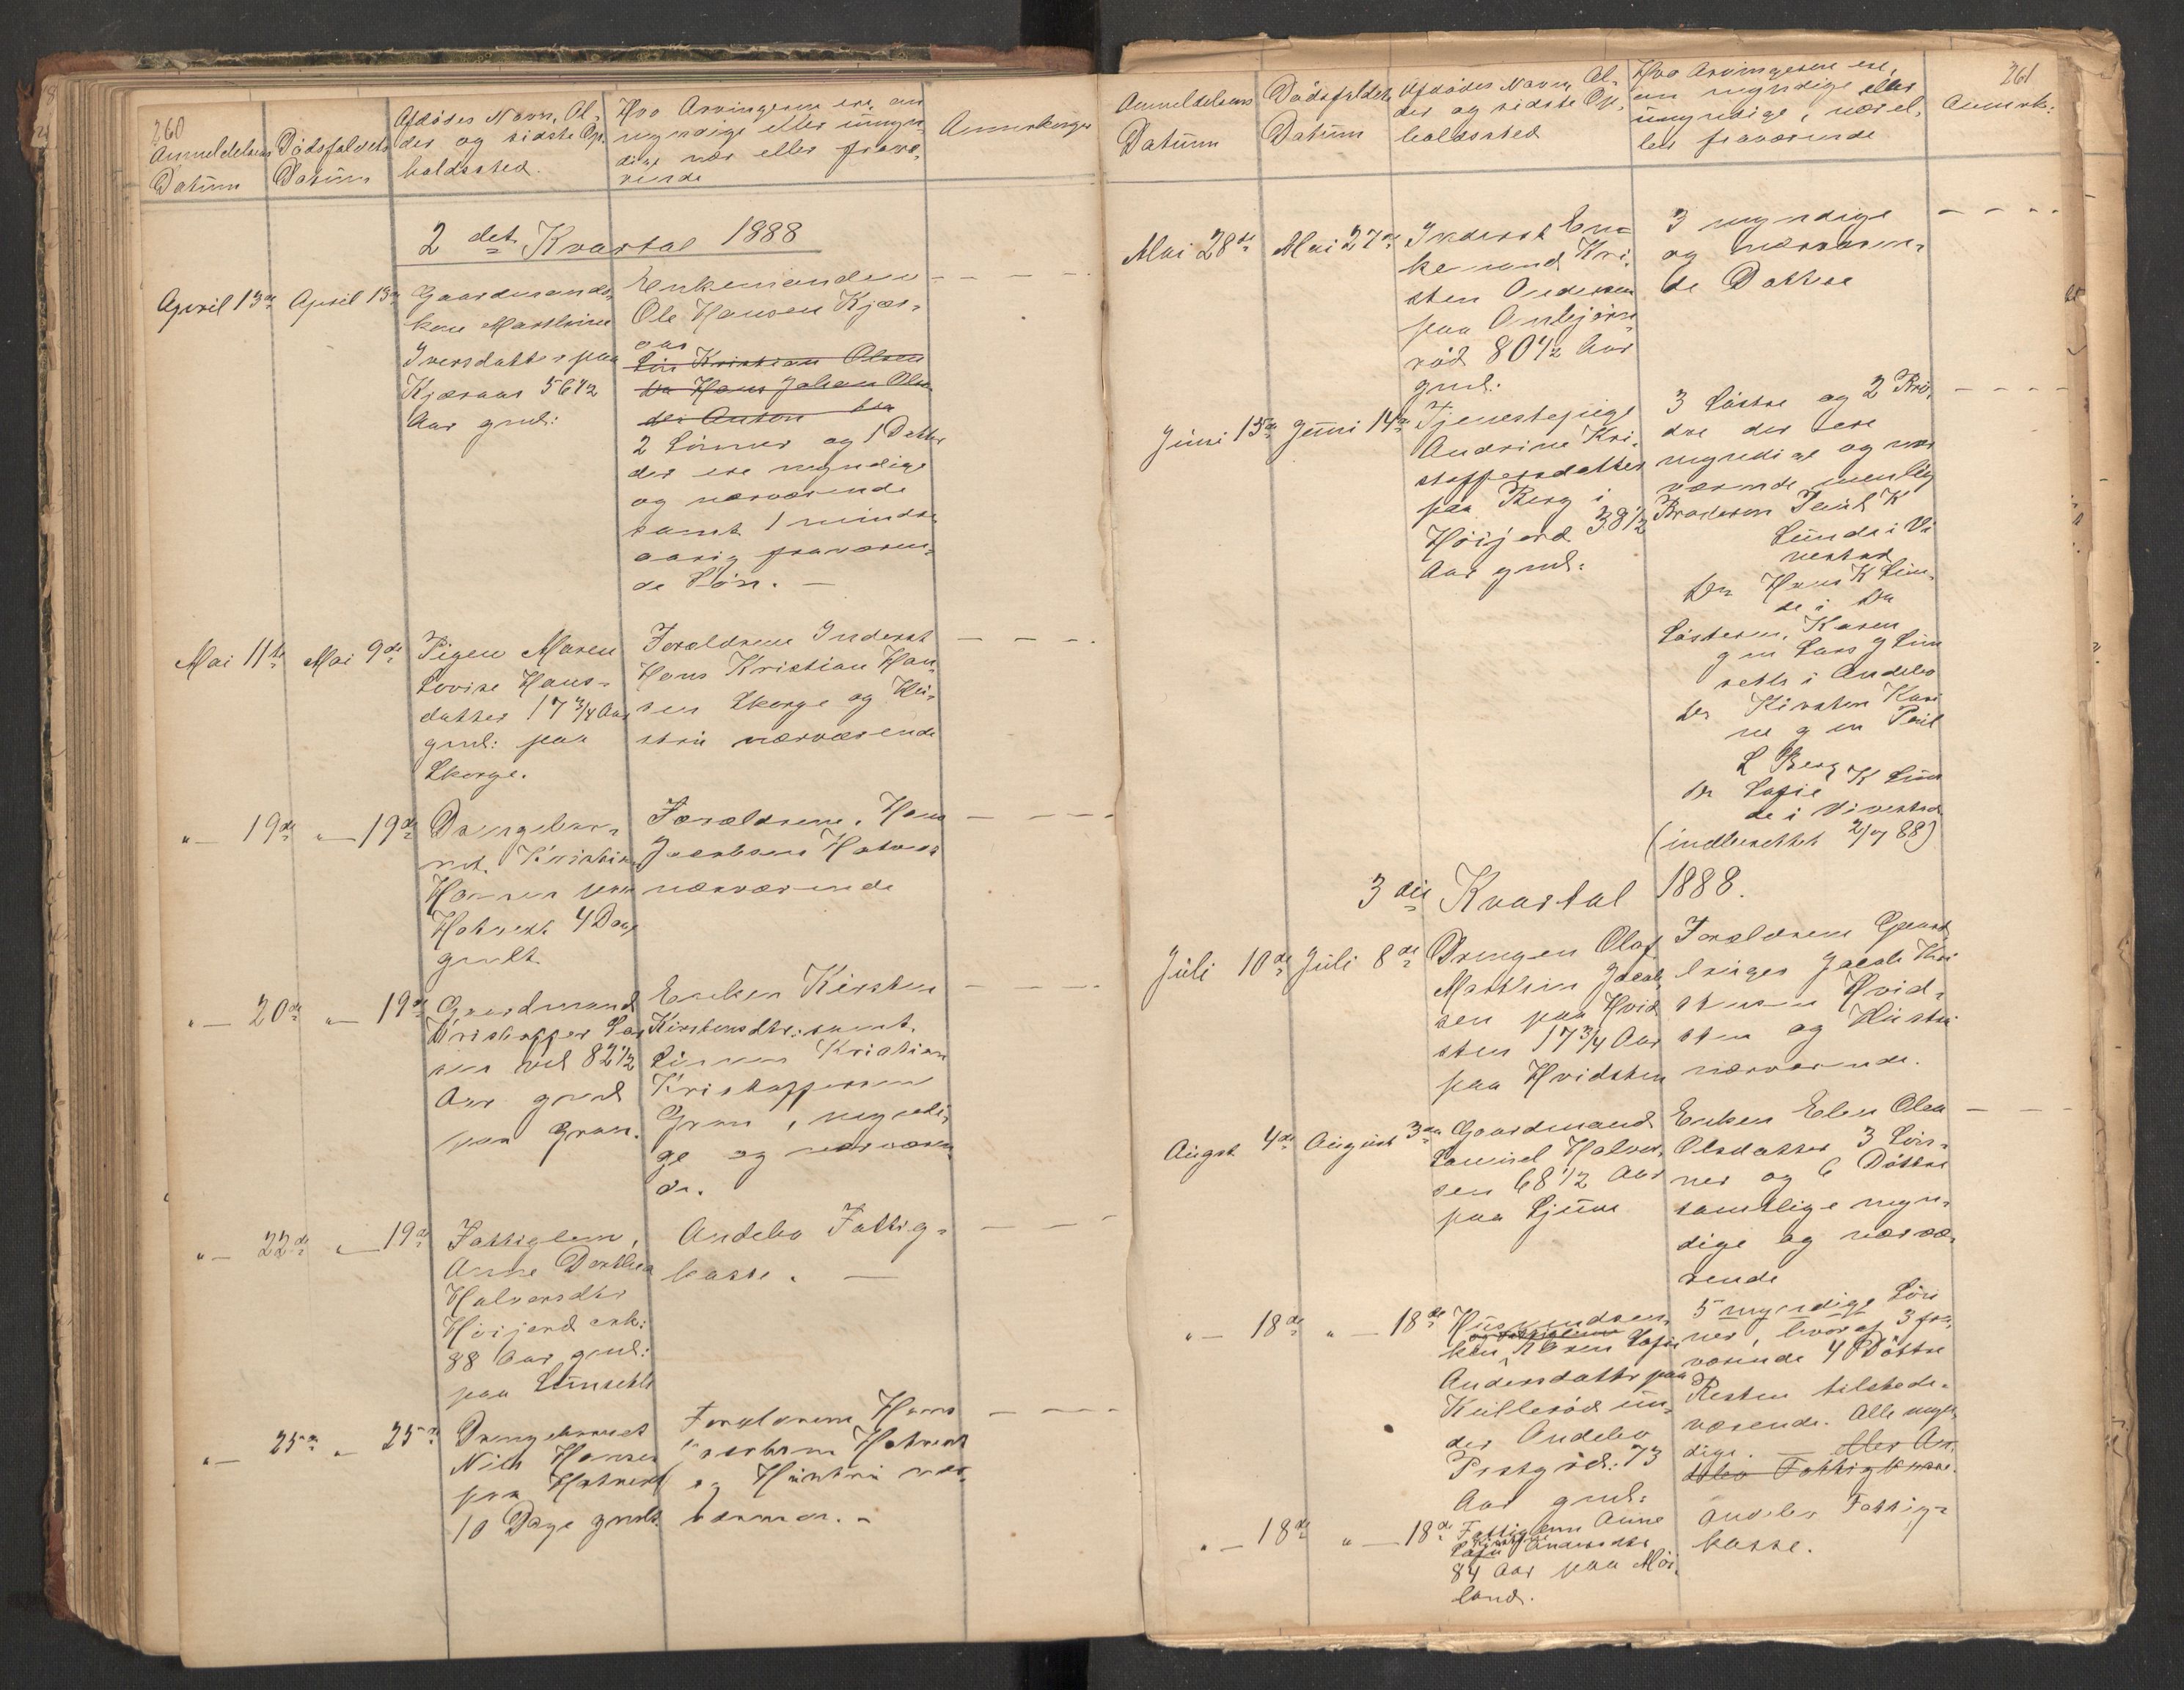 260
Anmeldelsens Datum
Dödsfaldets Datum
Afdödes Navn, Al-
der og sidste Op-
holdssted.
Hvo Arvingerne ere, om
myndige eller umyn-
dige nær eller fravæ-
rende
Anmerkninger
2det Kvartal 1888
April 13de April 13de
Gaardmands-
kone Marthine
Iversdatter paa
Kjæraas 56 1/2
Aar gml:
Enkemanden
Ole Hansen Kjær-
aas
Sön Kristian Olsen
do Hans Johan Olsen
do Anton do
2 Sönner og 1 Datter
der ere myndige
og nærværende
samt 1 mindre-
aarig fraværen-
de Sön. —
Mai 11te Mai 9de
Pigen Maren
Lovise Hans-
datter 17 3/4 Aar
gml: paa
Skorge.
Forældrene Inderst
Hans Kristian Han-
sen Skorge og Hu-
stru nærværende
" — 19de " — 19de
Drengebar-
net Kristian
Hansen paa
Hotvedt 4 Dage
gmlt
Forældrene, Hans
Jacobsen Hotvedt
nærværende
" — 20de " — 19de
Gaardmand
Kristoffer Lar-
sen ved 82 1/2
Aar gml
paa Gran.
Enken Kirsten
Kirstensdtr: samt
Sönnen Kristian
Kristoffersen
Gran, myndi-
ge og nærværen-
de.
" — 22de " — 19de
Fattiglem,
Anne Dorthea
Halvorsdtr
Höijord enk:
88 Aar gml:
paa Sünsetht
Andebo Fattig-
kasse. —
" — 25de " — 25de
Drengebarnet
Nils Hansen
paa Hotvedt
10 Dage gmlt.
Forældrene Hans
Jacobsen Hotvedt
og Hustru nær-
værende. —
261
Anmeldelsens Datum
Dödsfaldets Datum
Afdödes Navn, Al-
der og sidste Op-
holdssted
Hvo Arvingerne ere,
om myndige eller
umyndige, nær el-
ler fraværende
Anmerk:
Mai 28de Mai 27de
Inderst En-
kemand Kri-
sten Andersen
paa Anbjörn-
röd 80 1/2 Aar
gml:
3 myndige
og nærværen-
de Döttre
Juni 15de Juni 14de
Tjenestepige
Andrine Kri-
stoffersdatter
paa Berg i
Höijord 38 1/2
Aar gml:
3 Söstre og 2 Brö-
dre der ere
myndige og nær
værende nemlig
Broderen Paul K
Lunde i Vi
vestad
do Hans K Lun-
de i do
Sösteren, Karen
g m Lars G Sün
seth i Andebo
do Kirsten Kari
ne g m Paul
L Berg
do Sofie K Lun
de i Vivestad
(indberettet 2/7 88)
3die Kvartal 1888.
Juli 10de Juli 8de
Drengen Olaf
Mathias Jacob-
sen paa Hvid
sten 17 3/4 Aar
paa Hvidsten
Forældrene Gaard
bruger Jacob Kri
stensen Hvid-
sten og Hustru
nærværende.
Augst 4de August 3de
Gaardmand
Samuel Halvor-
sen 68 1/2 Aar
paa Sjuve
Enken Elen Olea
Olsdatter 3 Sön-
ner og 6 Döttre
samtlige myn-
dige og nærvæ-
rende
" — 18de " — 18de
Husmands-
og Fattiglem
kone, Karen Sofie
Andersdatter paa
Kulleröd un-
der Andebo
Prstgrd: 73
Aar gml:
5 myndige Sön
ner, hvoraf 3 fra-
værende 4 Döttre
Resten tilstede-
værende. Alle myn-
dige. — eller An-
debo Fattigkasse.
" — 18de " — 18de
Fattiglem Anne
Sofie Andersdtr
84 Aar paa Möi-
land.
Andebo Fattig-
kasse.